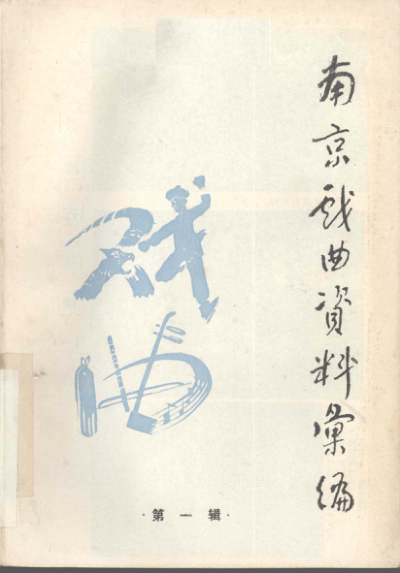 南京戏曲資料彙编
戏曲
·第一辑·